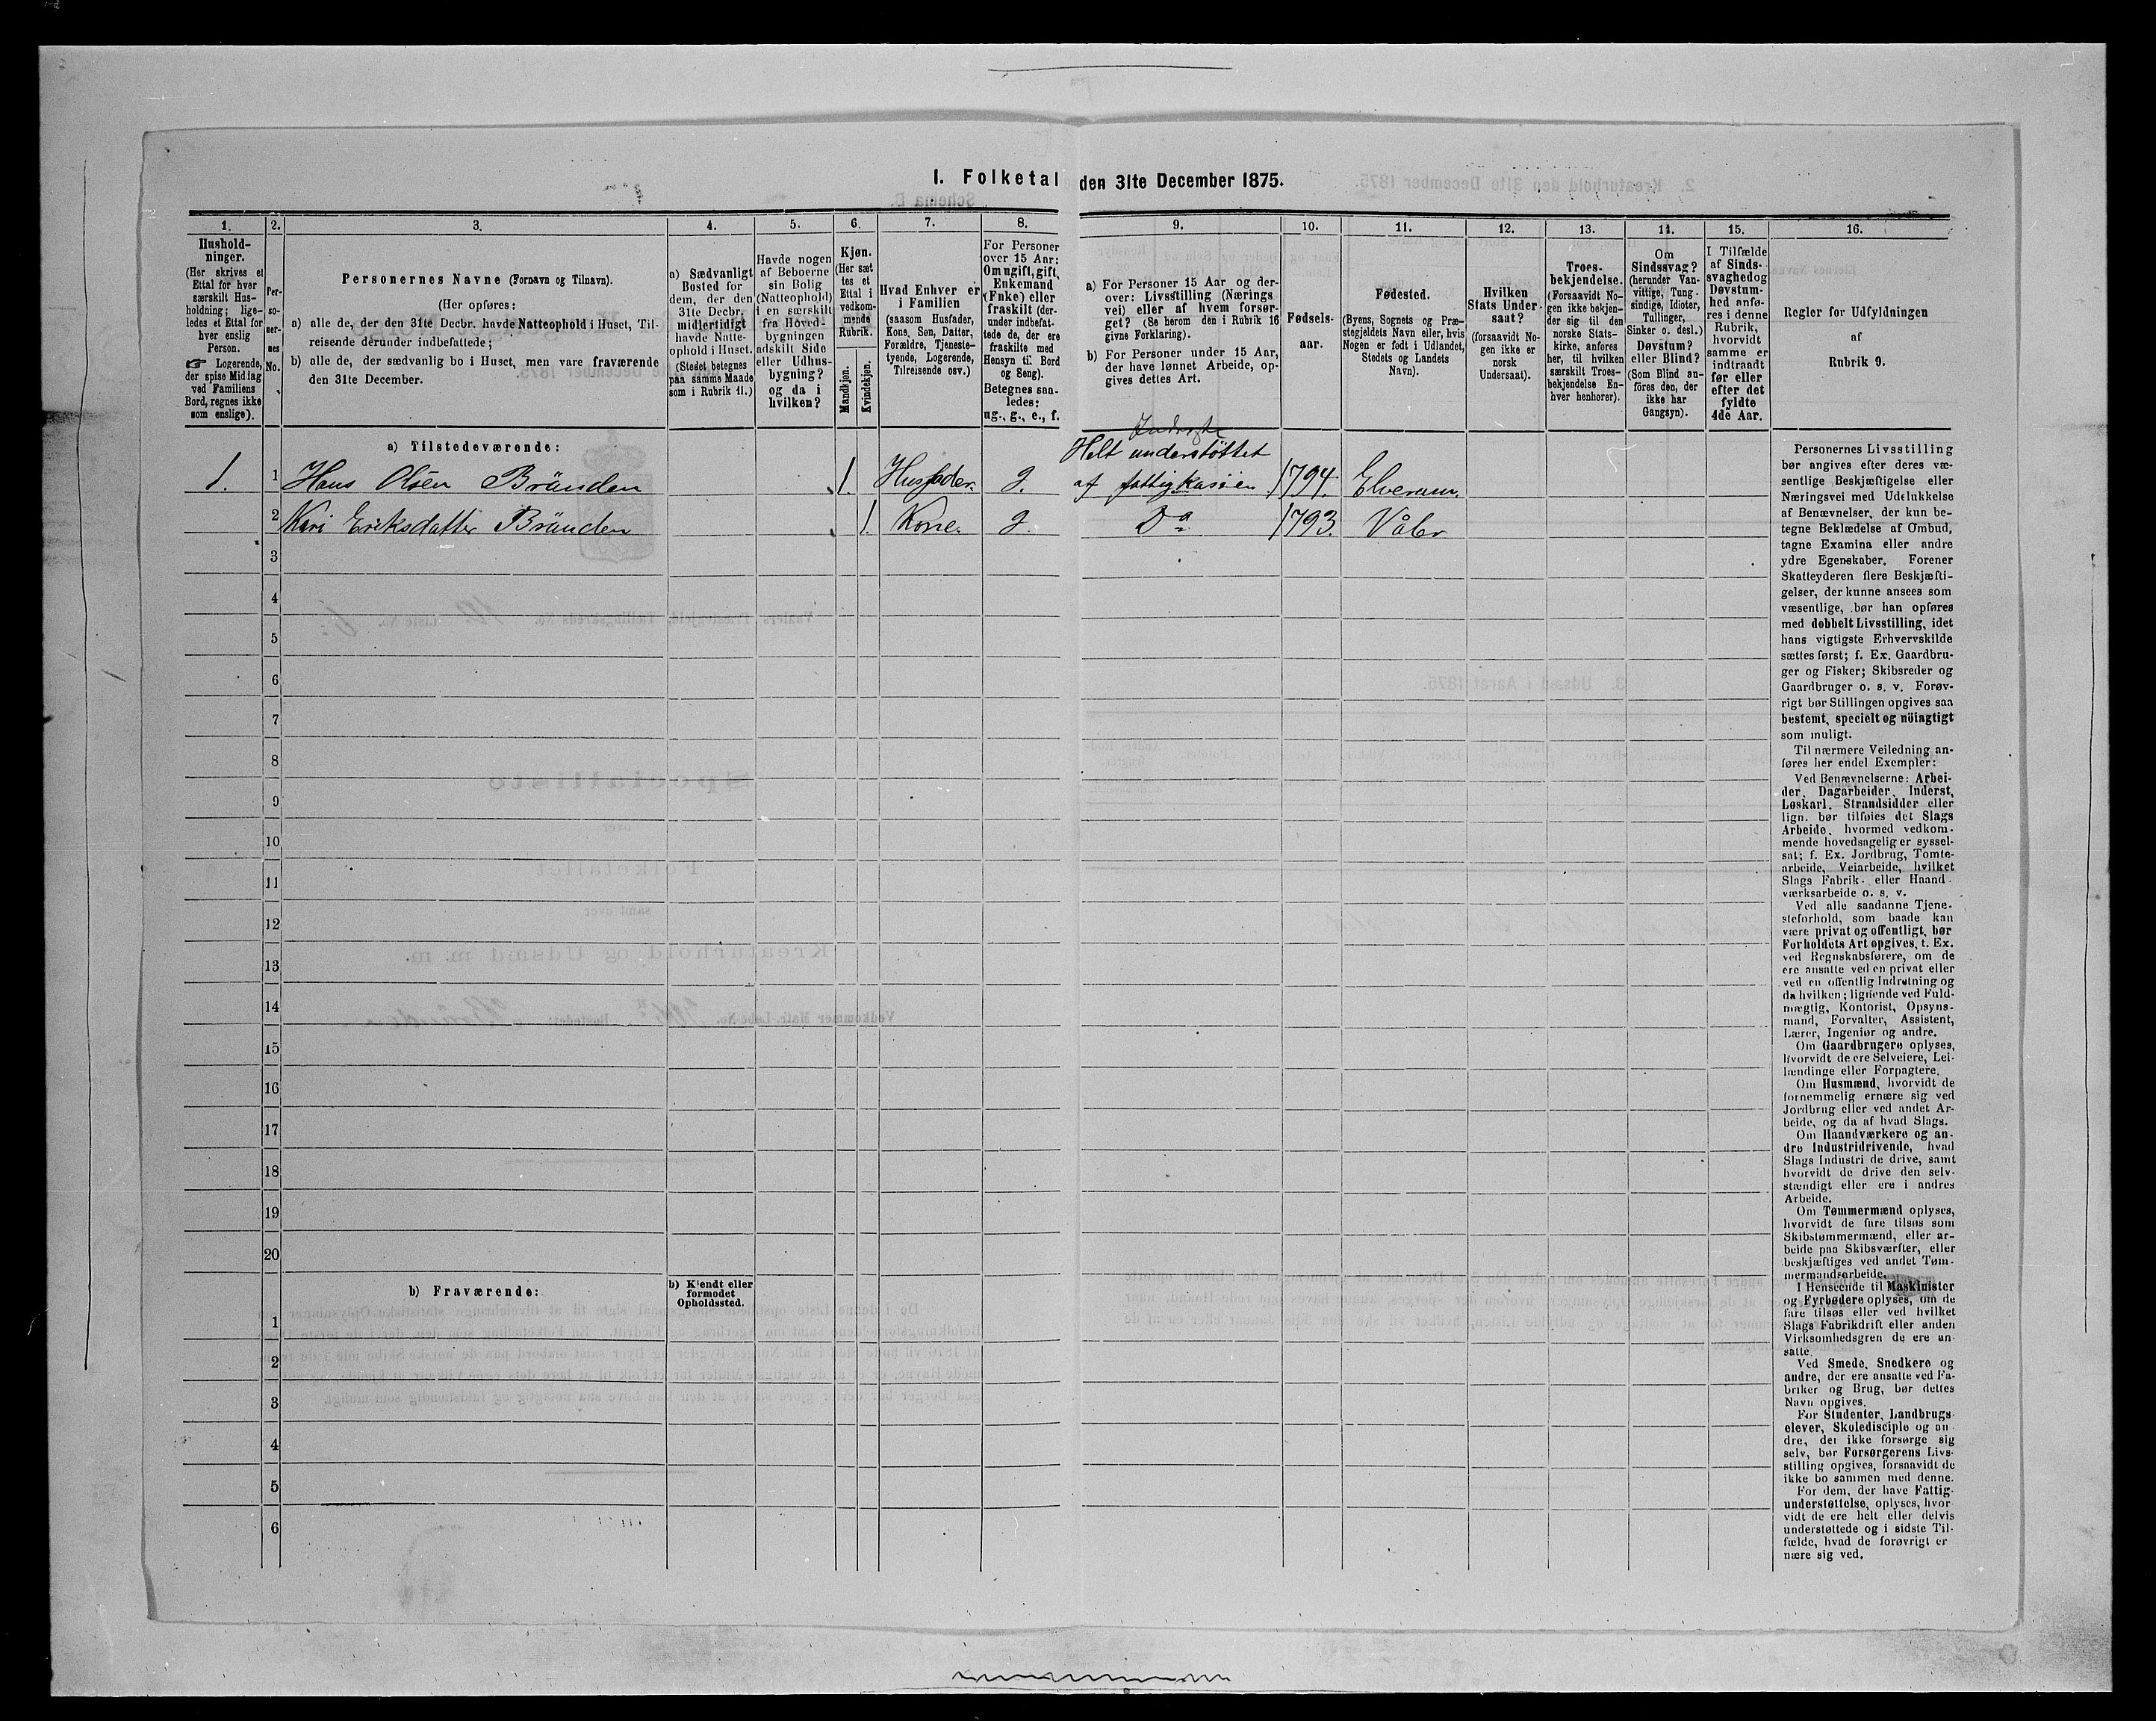 I. Folketal den 31te December 1875.
1.
Hushold-
ninger.
(Her skrives et
Ettal for hver
særskilt Hus-
holdning; lige-
ledes et Ettal for
hver enslig
Person.
☞ Logerende,
der spise Middag
ved Familiens
Bord, regnes ikke
som enslige).
2.
Per-
so-
ner-
nes
No.
3.
Personernes Navne (Fornavn og Tilnavn).
(Her opføres:
a) alle de, der den 31te Decbr. havde Natteophold i Huset, Til-
reisende derunder indbefattede;
b) alle de, der sædvanlig bo i Huset, men vare fraværende
den 31te December.
4.
a) Sædvanligt
Bosted for
dem, der den
31te Decbr.
midlertidigt
havde Natte-
ophold i Huset.
(Stedet betegnes
paa samme Maade
som i Rubrik 11.)
5.
Havde nogen
af Beboerne
sin Bolig
(Natteophold)
i en særskilt
fra Hoved-
bygningen
adskilt Side
eller Udhus-
bygning?
og da i
hvilken?
6.
Kjøn.
(Her sæt
tes et
Ettal i
vedkom-
mende
Rubrik.
Mandkjøn.
Kvindekjøn.
7.
Hvad Enhver er
i Familien
(saasom Husfader,
Kone, Søn, Datter,
Forældre, Tjeneste-
tyende, Logerende,
Tilreisende osv.)
8.
For Personer
over 15 Aar:
Om ugift, gift,
Enkemand
(Enke) eller
fraskilt (der-
under indbefat-
tede de, der ere
fraskilte med
Hensyn til Bord
og Seng).
Betegnes saa-
ledes:
ug., g., e., f.
9.
a) For Personer 15 Aar og der-
over: Livsstilling (Nærings
vei) eller af hvem forsør-
get? (Se herom den i Rubrik 16
givne Forklaring).
b) For Personer under 15 Aar,
der have lønnet Arbeide, op-
gives dettes Art.
10.
Fødsels-
aar.
11.
Fødested.
(Byens, Sognets og Præ-
stegjeldets Navn eller, hvis
Nogen er født i Udlandet,
Stedets og Landets
Navn).
12.
Hvilken
Stats Under-
saat?
(forsaavidt No-
gen ikke er
norsk
Undersaat).
13.
Troes-
bekjendelse.
(Forsaavidt No-
gen ikke bekjen-
der sig til den
norske Stats-
kirke, anføres
her, til hvilken
særskilt Troes-
bekjendelse En-
hver henhører).
14.
Om
Sindssvag?
(herunder Van-
vittige, Tung-
sindige, Idioter,
Tullinger,
Sinker o. desl.)
Døvstum?
eller Blind?
(Som Blind an-
föres den, der
ikke har
Gangsyn).
15.
I Tilfælde
af Sinds-
svaghed og
Døvstum-
hed anfø-
res i denne
Rubrik,
hvorvidt
samme er
indtraadt
før eller
efter det
fyldte
4de Aar.
16.
Regler for Udfyldningen
af
Rubrik 9.
a) Tilstedeværende:
Inderste
Helt understöttet
1. 1 Hans Olsen Brånden 1. Husfader. g. af fattigkassen 1794. Elverum.
2 Kari Eriksdatter Brånden 1. Kone. g. Do 1793. Våler
3
4
5
6
7
8
9
10
11
12
13
14
15
16
17
18
19
20
b) Fraværende:
b) Kjendt eller
formodet
Opholdssted.
1
2
3
4
5
6
Personernes Livsstilling
bør angives efter deres væ-
sentlige Beskjæftigelse eller
Næringsvei med Udelukkelse
af Benævnelser, der kun be-
tegne Beklædelse af Ombud,
tagne Examina eller andre
ydre Egenskaber. Forener
Skatteyderen flere Beskjæfti-
gelser, der kunne ansees som
væsentlige, bør han opføres
med dobbelt Livsstilling, idet
hans vigtigste Erhvervskilde
sættes først; f. Ex. Gaardbru-
ger og Fisker; Skibsreder og
Gaardbruger o. s. v. Forøv-
rigt bør Stillingen opgives saa
bestemt, specielt og nöiagtigt
som muligt.
Til nærmere Veiledning an-
føres her endel Exempler:
Ved Benævnelserne: Arbei-
der, Dagarbeider, Inderst,
Løskarl, Strandsidder eller
lign. bør tilføies det Slags
Arbeide, hvormed vedkom-
mende hovedsagelig er syssel-
sat; f. Ex. Jordbrug, Tomte-
arbeide, Veiarbeide, hvilket
Slags Fabrik- eller Haand-
værksarbeide o. s. v.
Ved alle saadanne Tjene-
steforhold, som baade kan
være privat og offentligt, bør
Forholdets Art opgives, t. Ex.
ved Regnskabsførere, om de
ere ansatte ved en privat eller
ved en offentlig Indretning og
da hvilken; lignende ved Fuld-
mægtig, Kontorist, Opsyns-
mand, Forvalter, Assistent,
Lærer, Ingeniør og andre.
Om Gaardbrugere oplyses,
hvorvidt de ere Selveiere, Lei-
lændinge eller Forpagtere.
Om Husmænd, hvorvidt de
fornemmelig ernære sig ved
Jordbrug eller ved andet Ar-
beide, og da af hvad Slags.
Om Haandværkere og an-
dre Industridrivende, hvad
Slags Industri de drive, samt
hvorvidt de drive den selv-
stændigt eller ere i andres
Arbeide.
Om Tømmermænd oplyses,
hvorvidt de fare tilsøs som
Skibstømmermænd, eller ar-
beide paa Skibsværfter, eller
beskjæftiges ved andet Tøm-
mermandsarbeide.
I Henseende til Maskinister
og Fyrbødere oplyses, om de
fare tilsøs eller ved hvilket
Slags Fabrikdrift eller anden
Virksomhedsgren de ere an-
satte.
Ved Smede, Snedkere og
andre, der ere ansatte ved Fa-
briker og Brug, bør dettes
Navn opgives.
For Studenter, Landbrugs-
elever, Skoledisciple og an-
dre, der ikke forsørge sig
selv, bør Forsørgerens Livs-
stilling opgives, forsaavidt de
ikke bo sammen med denne.
For dem, der have Fattig-
understøttelse, oplyses, hvor-
vidt de ere helt eller delvis
understøttede og i sidste Til-
fælde, hvad de forøvrigt er-
nære sig ved.